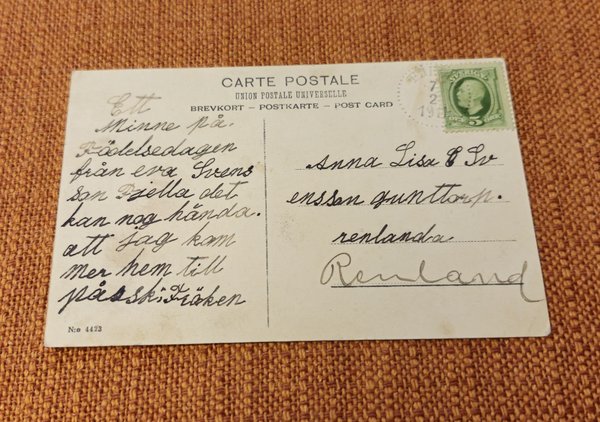 CARTE POSTALE
UNION POSTALE UNIVERSELLE
BREVKORT – POSTKARTE – POST CARD
Ett
Minne på.
Födelsedagen
från eva Svens
son Fjella det
kan nog hända.
att jag kom
mer hem till
påsk Fröken
Anna Lisa E Sv
ensson gunttorp.
renlanda
Renland
N:o 4423
SVERIGE
5
7
2